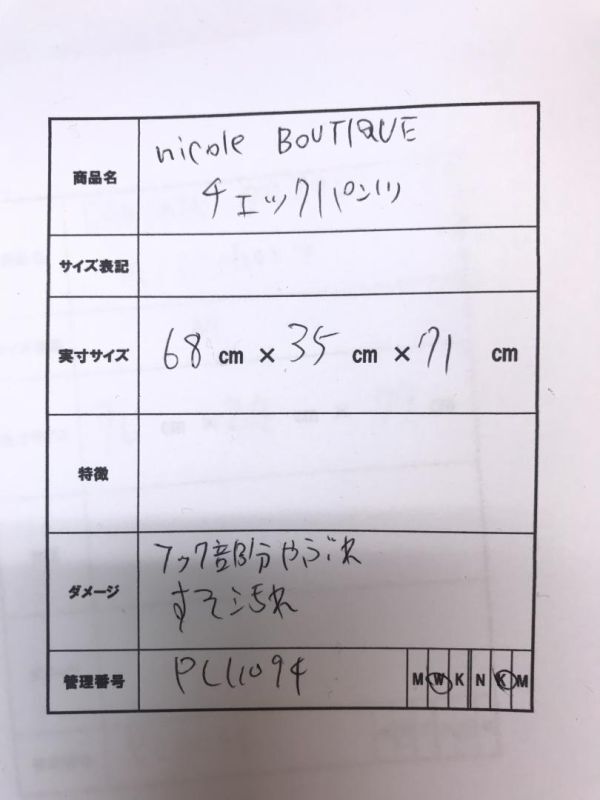 商品名
nicole BOUTIQUE
チェックパンツ
サイズ表記
実寸サイズ
68 cm × 35 cm × 71 cm
特徴
ダメージ
フック部分やぶれ
すそ汚れ
管理番号
M W K N K M